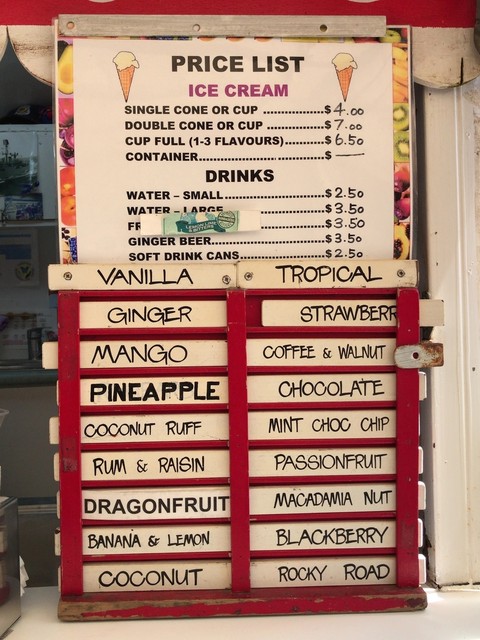 PRICE LIST
ICE CREAM
SINGLE CONE OR CUP ................$ 4.00
DOUBLE CONE OR CUP ................$ 7.00
CUP FULL (1-3 FLAVOURS)...........$ 6.50
CONTAINER................................$ —
DRINKS
WATER – SMALL.........................$ 2.50
WATER – LARGE.........................$ 3.50
FR $ 3.50
GINGER BEER............................$ 3.50
SOFT DRINK CANS.....................$ 2.50
VANILLA TROPICAL
GINGER STRAWBERR
MANGO COFFEE & WALNUT
PINEAPPLE CHOCOLATE
COCONUT RUFF MINT CHOC CHIP
RUM & RAISIN PASSIONFRUIT
DRAGONFRUIT MACADAMIA NUT
BANANA & LEMON BLACKBERRY
COCONUT ROCKY ROAD